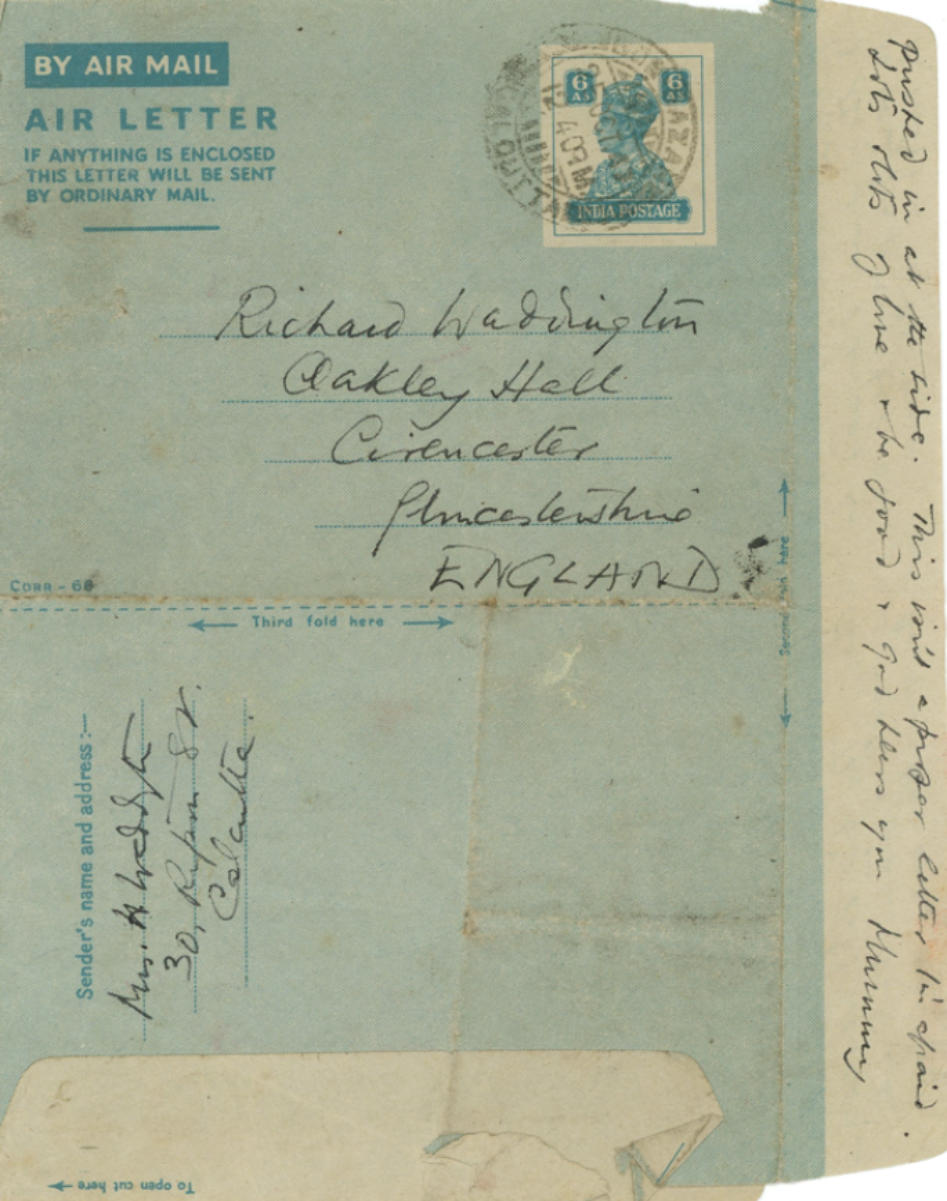 BY AIR MAIL
AIR LETTER
IF ANYTHING IS ENCLOSED
THIS LETTER WILL BE SENT
BY ORDINARY MAIL.
6 AS 6 AS
INDIA POSTAGE
Richard Waddington
Oakley Hall
Cirencester
Gloucestershire
ENGLAND
CORR - 68
Third fold here
Second fold here
Sender's name and address :—
Mrs. H Waddington
30, Ripon St.
Calcutta.
To open cut here
pushed in at the side. This isn't a proper letter I'm afraid.
Lots & lots of love & be good & God bless you Mummy